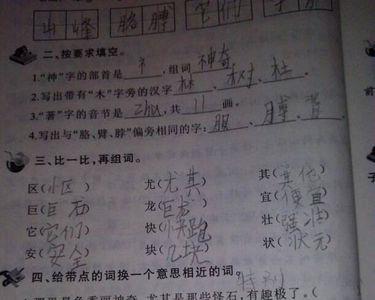 山峰 胳膊 它们
二、按要求填空。
1."神"字的部首是 礻 ,组词 神奇 。
2.写出带有"木"字旁的汉字 林 、 树 、 杜
3."著"字的音节是 zhù ,共 11 画。
4.写出与"胳、臂、脖"偏旁相同的字: 胆 、 膊 、 背
三、比一比,再组词。
区(小区) 尤(尤其) 其(其他)
巨(巨石) 龙(巨龙) 宜(便宜)
它(它们) 快(快跑) 壮(强壮)
安(安全) 块(几块) 状(状元)
四、给带点的词换一个意思相近的词。
特别
神奇,尤其是那些怪石,有趣极了。(